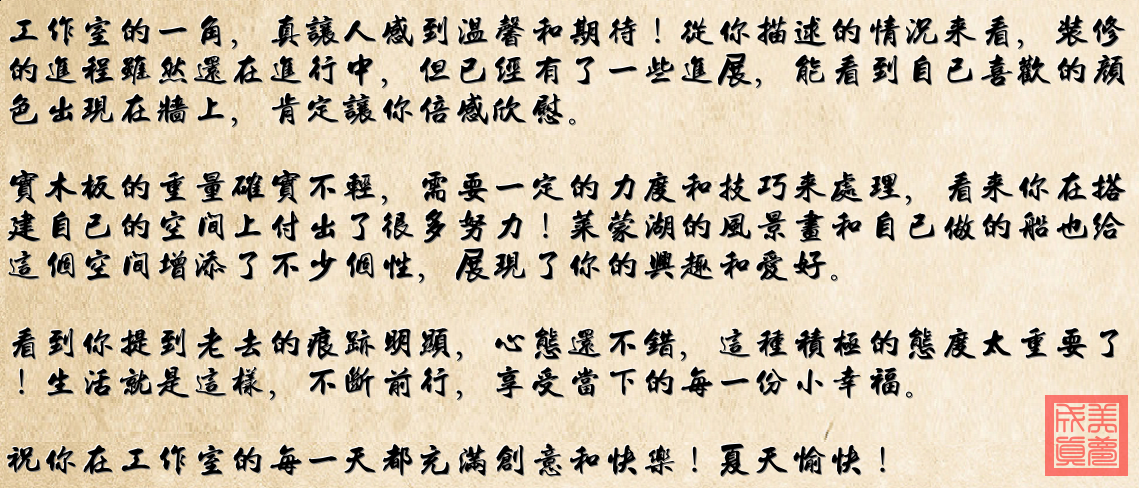 工作室的一角，真讓人感到溫馨和期待！從你描述的情況來看，裝修
的進程雖然還在進行中，但已經有了一些進展，能看到自己喜歡的顏
色出現在牆上，肯定讓你倍感欣慰。
實木板的重量確實不輕，需要一定的力度和技巧來處理，看來你在搭
建自己的空间上付出了很多努力！萊蒙湖的風景畫和自己做的船也给
這個空间增添了不少個性，展現了你的興趣和愛好。
看到你提到老去的痕跡明顯，心態還不錯，這種積極的態度太重要了
！生活就是這樣，不斷前行，享受當下的每一份小幸福。
祝你在工作室的每一天都充滿創意和快樂！夏天愉快！
美夢成真